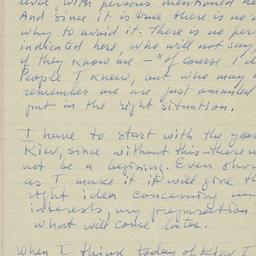 level, with persons mentioned he
And since it is true there is no r
why to avoid it. There is no per
indicated here, who will not say,
if they know me — "of course I d
People I knew, but who may n
remember me are just assimiled
put in the right situation.
I have to start with the year
Kiev, since without this there w
not be a begining. Even shor
as I make it it will give th
right idea concerning my
interests, my preparation
what will come later.
When I think today of Kiev I